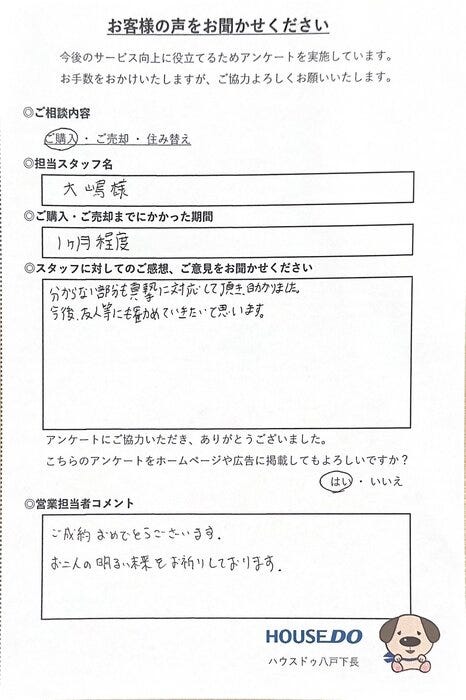 お客様の声をお聞かせください
今後のサービス向上に役立てるためアンケートを実施しています。
お手数をおかけいたしますが、ご協力よろしくお願いいたします。
◎ご相談内容
ご購入 ・ ご売却 ・ 住み替え
◎担当スタッフ名
大嶋様
◎ご購入・ご売却までにかかった期間
1ヶ月程度
◎スタッフに対してのご感想、ご意見をお聞かせください
分からない部分も真摯に対応して頂き助かりました。
今後、友人等にも勧めていきたいて思います。
アンケートにご協力いただき、ありがとうございました。
こちらのアンケートをホームページや広告に掲載してもよろしいですか？
はい ・ いいえ
◎営業担当者コメント
ご成約おめでとうございます.
お二人の明るい未来をお祈りしております.
HOUSEDO
ハウスドゥ八戸下長